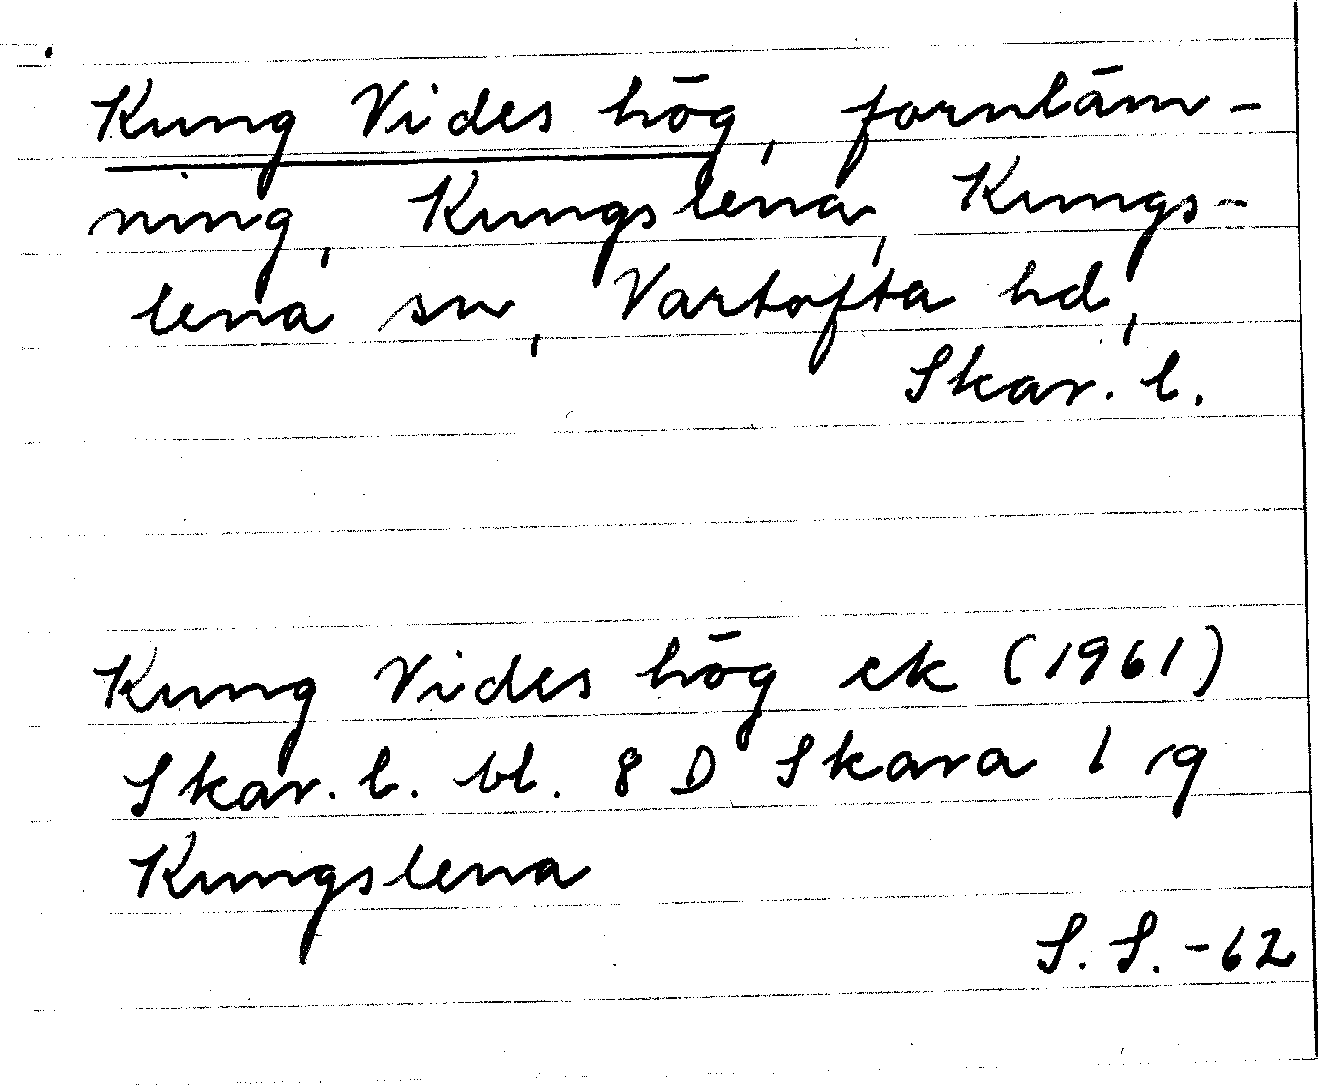 Kung Vides hög, fornläm-
ning, Kungslena, Kungs-
lena sn, Vartofta hd,
Skar. l.
Kung Vides hög ek (1961)
Skar. l. bl. 8 D Skara l ig
Kungslena
S. S. -62